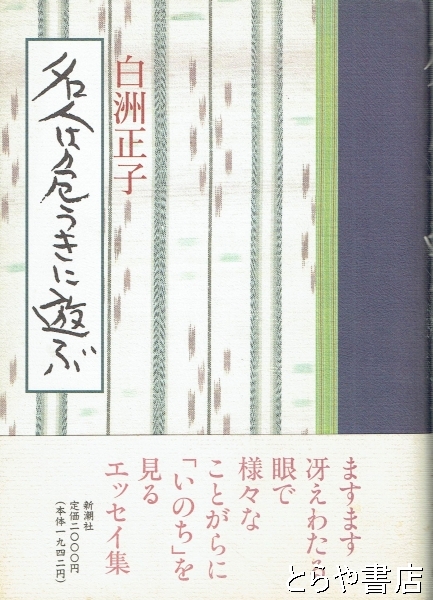 白洲正子
名人は危うきに遊ぶ
ますます
冴えわたる
眼で
様々な
ことがらに
「いのち」を
見る
エッセイ集
新潮社
定価二〇〇〇円
(本体一九四二円)
とらや書店